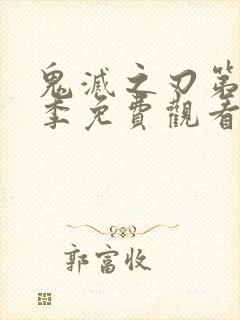 鬼滅之刃第
季免費觀看
郭富收